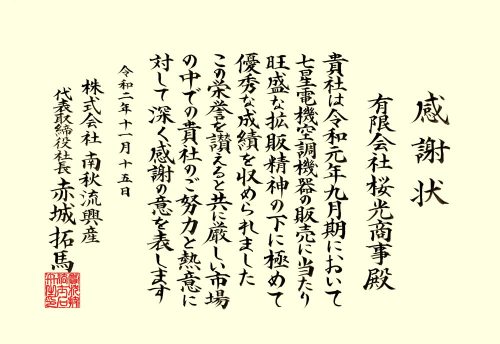 感謝状
有限会社桜光商事殿
貴社は令和元年九月期において
七星電機空調機器の販売に当たり
旺盛な拡販精神の下に極めて
優秀な成績を収められました
この栄誉を讃えると共に厳しい市場
の中での貴社のご努力と熱意に
対して深く感謝の意を表します
令和二年十一月十五日
株式会社南秋流興産
代表取締役社長 赤城拓馬